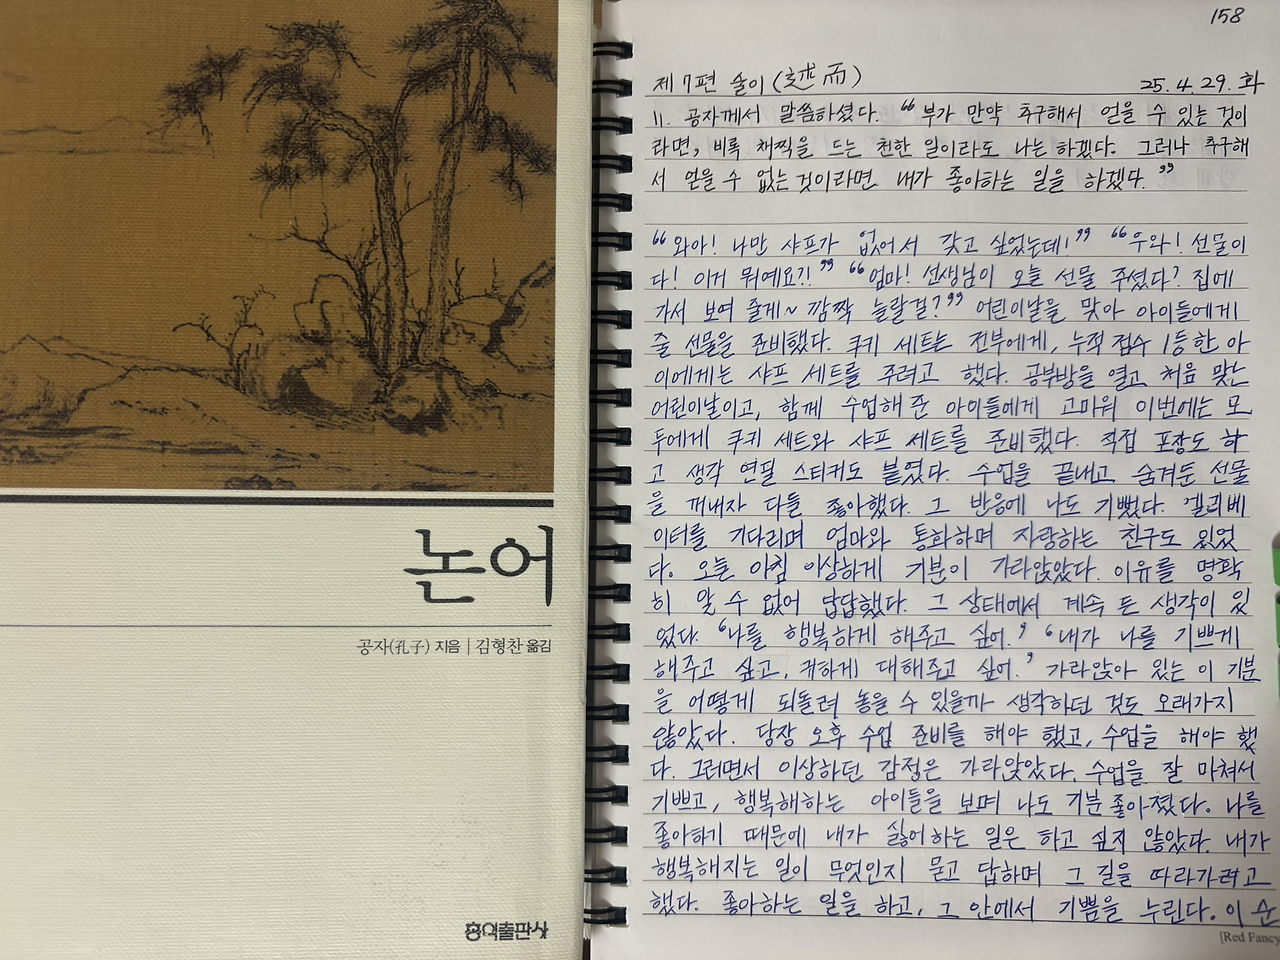 논어
공자(孔子) 지음 | 김형찬 옮김
홍익출판사
158
제7편 술이(述而) 25.4.29.화
11. 공자께서 말씀하셨다. "부가 만약 추구해서 얻을 수 있는 것이
라면, 비록 채찍을 드는 천한 일이라도 나는 하겠다. 그러나 추구해
서 얻을 수 없는 것이라면 내가 좋아하는 일을 하겠다."
"와아! 나만 샤프가 없어서 갖고 싶었는데!" "우와! 선물이
다! 이거 뭐예요?!" "엄마! 선생님이 오늘 선물 주셨다? 집에
가서 보여 줄게~ 깜짝 놀랄걸?" 어린이날을 맞아 아이들에게
줄 선물을 준비했다. 쿠키 세트는 전부에게, 누적 점수 1등한 아
이에게는 샤프 세트를 주려고 했다. 공부방을 열고 처음 맞는
어린이날이고, 함께 수업해 준 아이들에게 고마워 이번에는 모
두에게 쿠키 세트와 샤프 세트를 준비했다. 직접 포장도 하
고 생각 연필 스티커도 붙였다. 수업을 끝내고 숨겨둔 선물
을 꺼내자 다들 좋아했다. 그 반응에 나도 기뻤다. 엘리베
이터를 기다리며 엄마와 통화하며 자랑하는 친구도 있었
다. 오늘 아침 이상하게 기분이 가라앉았다. 이유를 명확
히 알 수 없어 답답했다. 그 상태에서 계속 든 생각이 있
었다. '나를 행복하게 해주고 싶어.' '내가 나를 기쁘게
해주고 싶고, 귀하게 대해주고 싶어.' 가라앉아 있는 이 기분
을 어떻게 되돌려 놓을 수 있을까 생각하던 것도 오래가지
않았다. 당장 오후 수업 준비를 해야 했고, 수업을 해야 했
다. 그러면서 이상하던 감정은 가라앉았다. 수업을 잘 마쳐서
기쁘고, 행복해하는 아이들을 보며 나도 기분 좋아졌다. 나를
좋아하기 때문에 내가 싫어하는 일은 하고 싶지 않았다. 내가
행복해지는 일이 무엇인지 묻고 답하며 그 길을 따라가려고
했다. 좋아하는 일을 하고, 그 안에서 기쁨을 누린다. 이 순
[Red Fancy